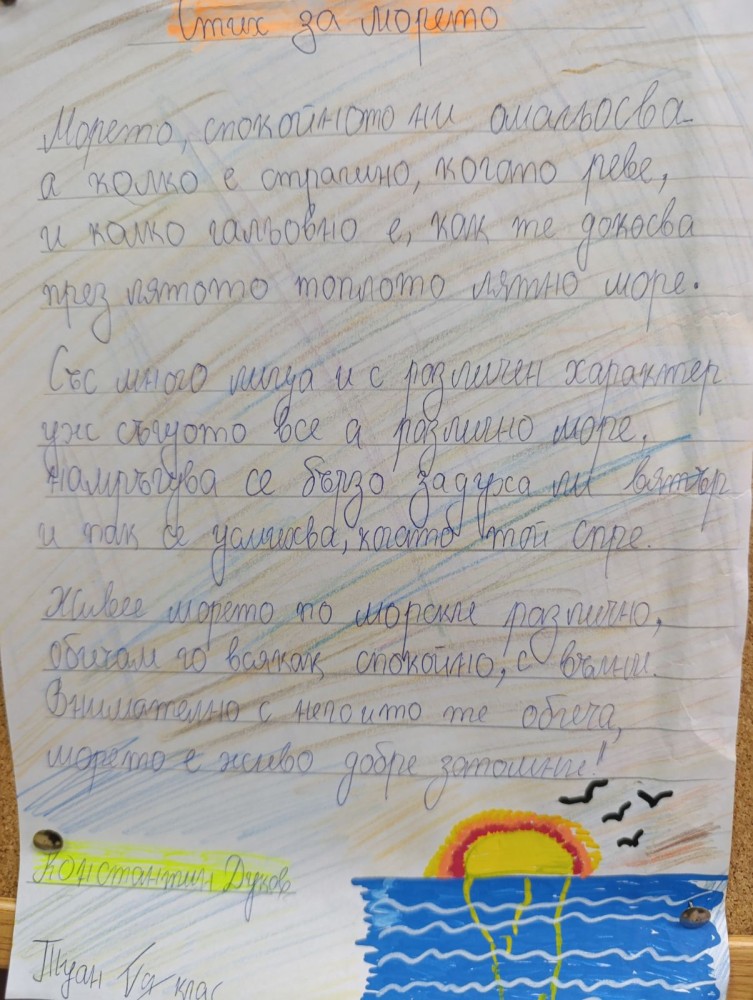 Стих за морето
Морето, спокойното ни омагьосва
а колко е страшно, когато реве,
и колко гальовно е, как те докосва
през лятото топлото лятно море.
Със много лица и с различен характер
уж същото все а различно море,
намръщва се бързо задуха ли вятър
и пак се усмихва, когато той спре.
Живее морето по морски различно,
обичам го всякак спокойно, с вълни.
Внимателно с него що те обича,
морето е живо добре запомни!
Константин Дуков
Туан Vя клас